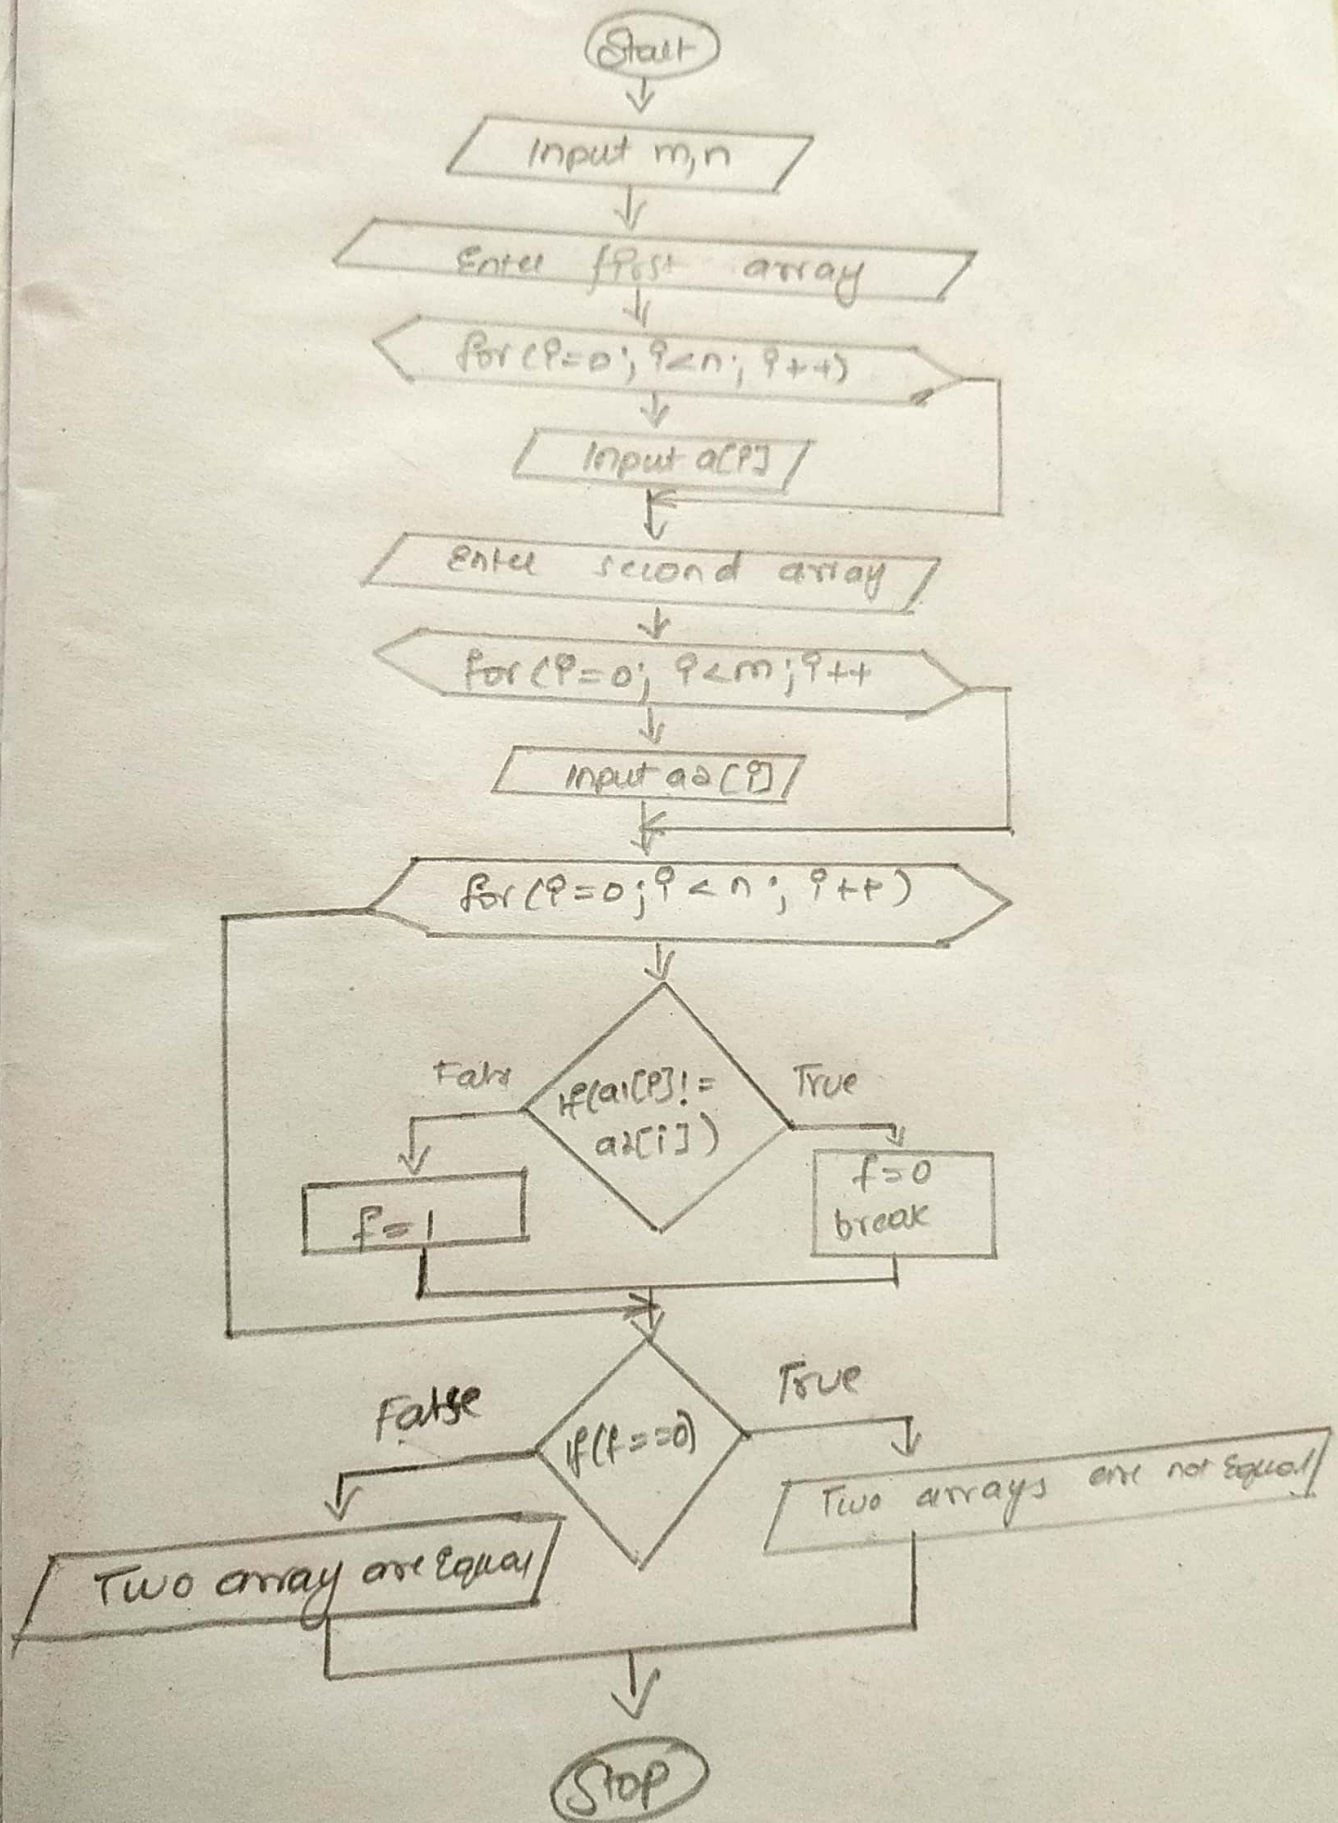 Start
Input m,n
Enter first array
for(i=0; i<n; i++)
Input a[i]
Enter second array
for(i=0; i<m; i++
Input a2[i]
for(i=0; i<n; i++)
False
True
if(a1[i]!=
a2[i])
f=1
f=0
break
False
True
if(f==0)
Two arrays are not Equal
Two array are Equal
Stop